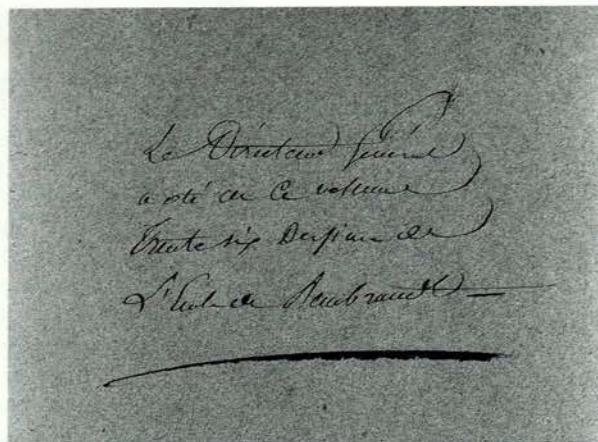 Le Directeur Général
a oté de Ce volume
Trente six Dessins de
L'Ecole de Rembrandt